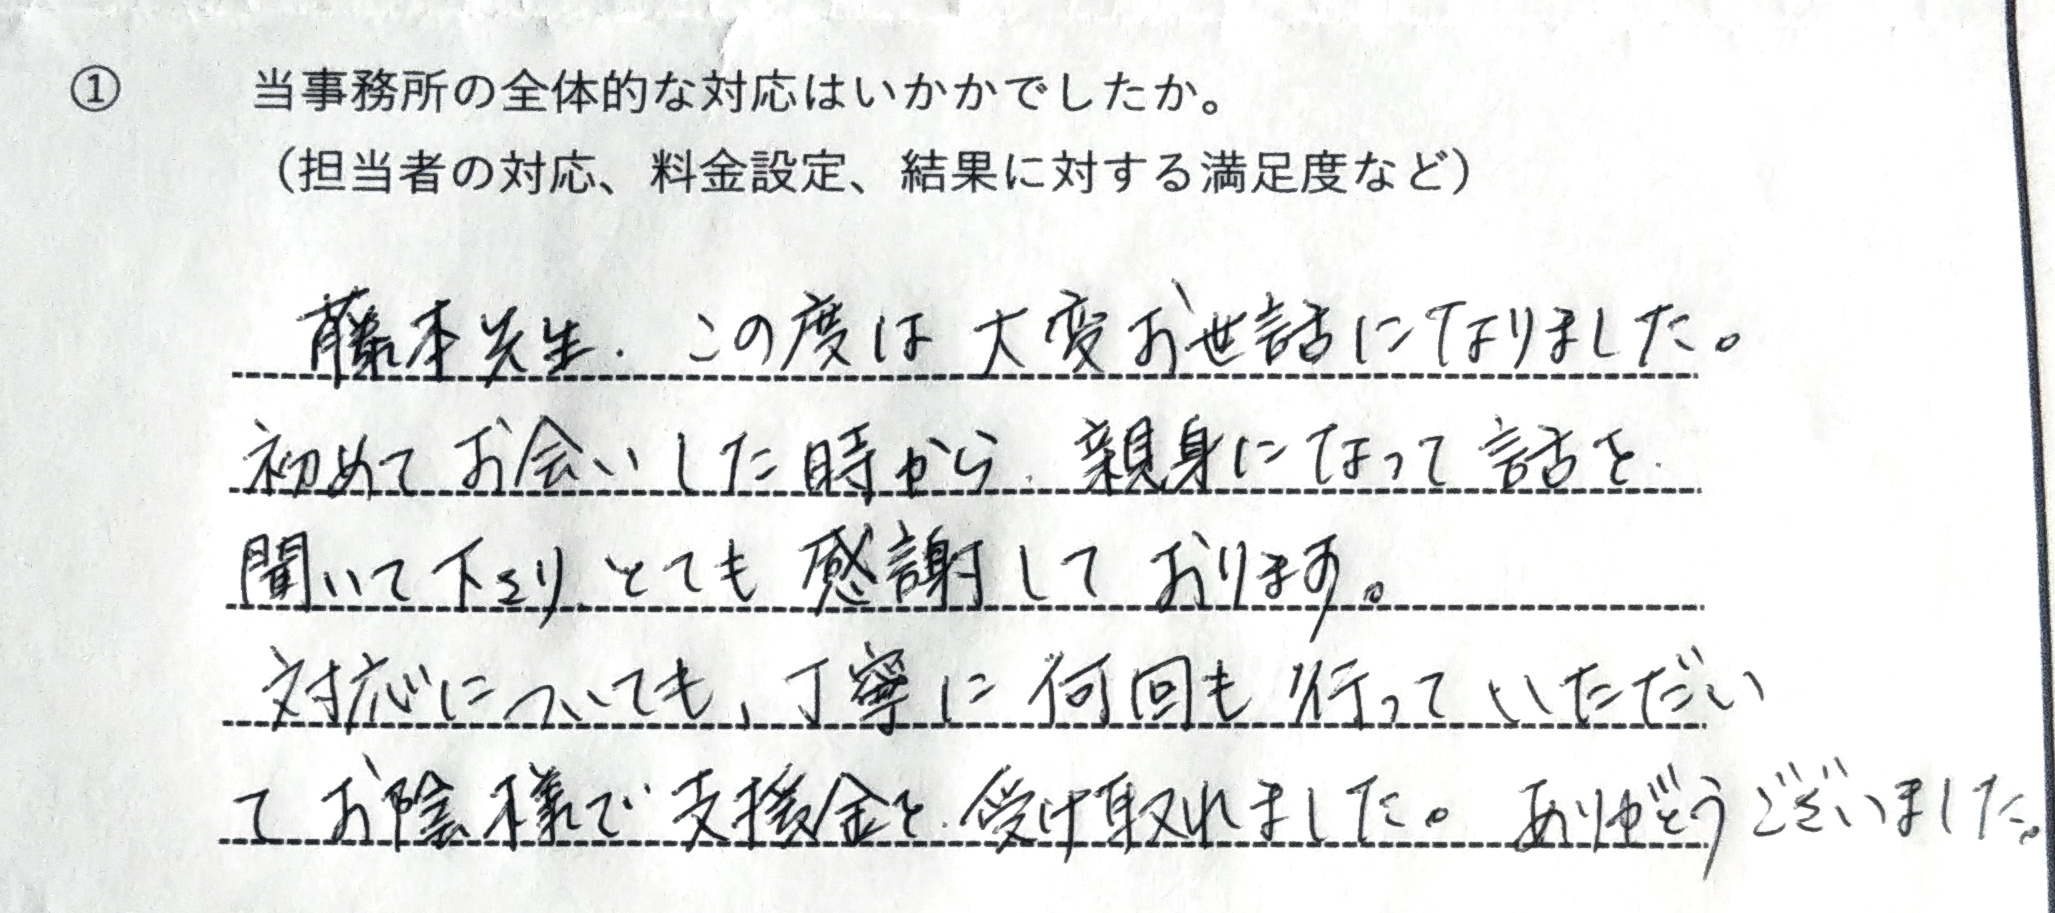 ① 当事務所の全体的な対応はいかかでしたか。
（担当者の対応、料金設定、結果に対する満足度など）
藤本先生、この度は大変お世話になりました。
初めてお会いした時から、親身になって話を
聞いて下さり、とても感謝しております。
対応についても、丁寧に何回も行っていただい
てお陰様で支援金を受け取れました。ありがとうございました。